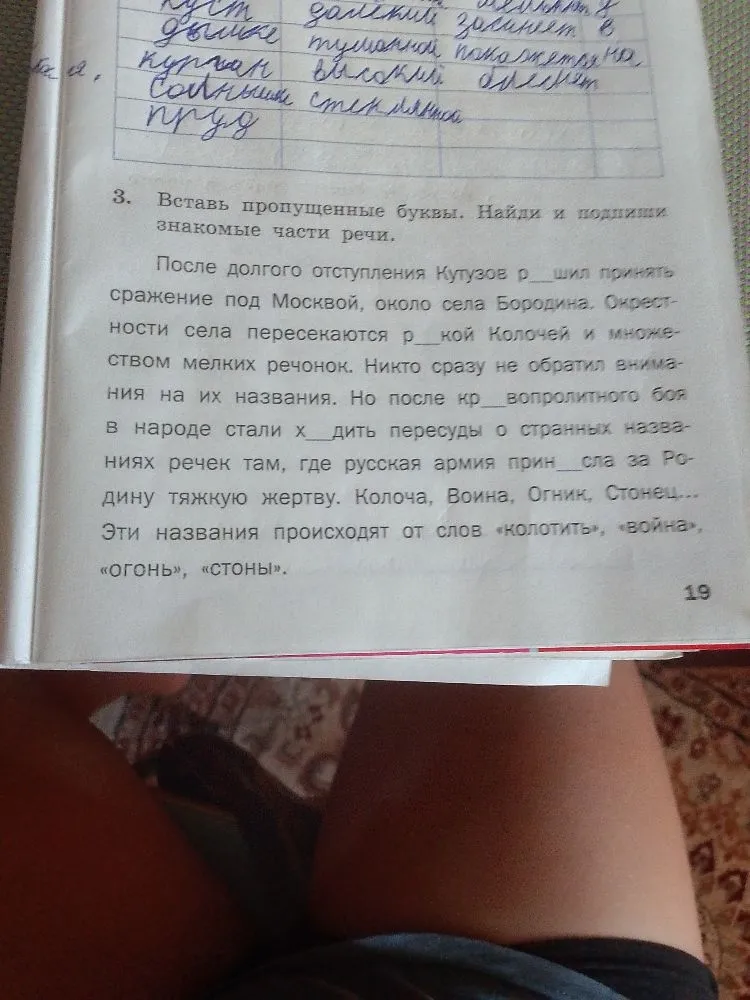 куст далекий засинеет в
дымке туманной покажется на
курган высокий блеснет
солнышке стеклянной
пруд
3. Вставь пропущенные буквы. Найди и подпиши
знакомые части речи.
После долгого отступления Кутузов р__шил принять
сражение под Москвой, около села Бородина. Окрест-
ности села пересекаются р__кой Колочей и множе-
ством мелких речонок. Никто сразу не обратил внима-
ния на их названия. Но после кр__вопролитного боя
в народе стали х__дить пересуды о странных назва-
ниях речек там, где русская армия прин__сла за Ро-
дину тяжкую жертву. Колоча, Воина, Огник, Стонец...
Эти названия происходят от слов «колотить», «война»,
«огонь», «стоны».
19